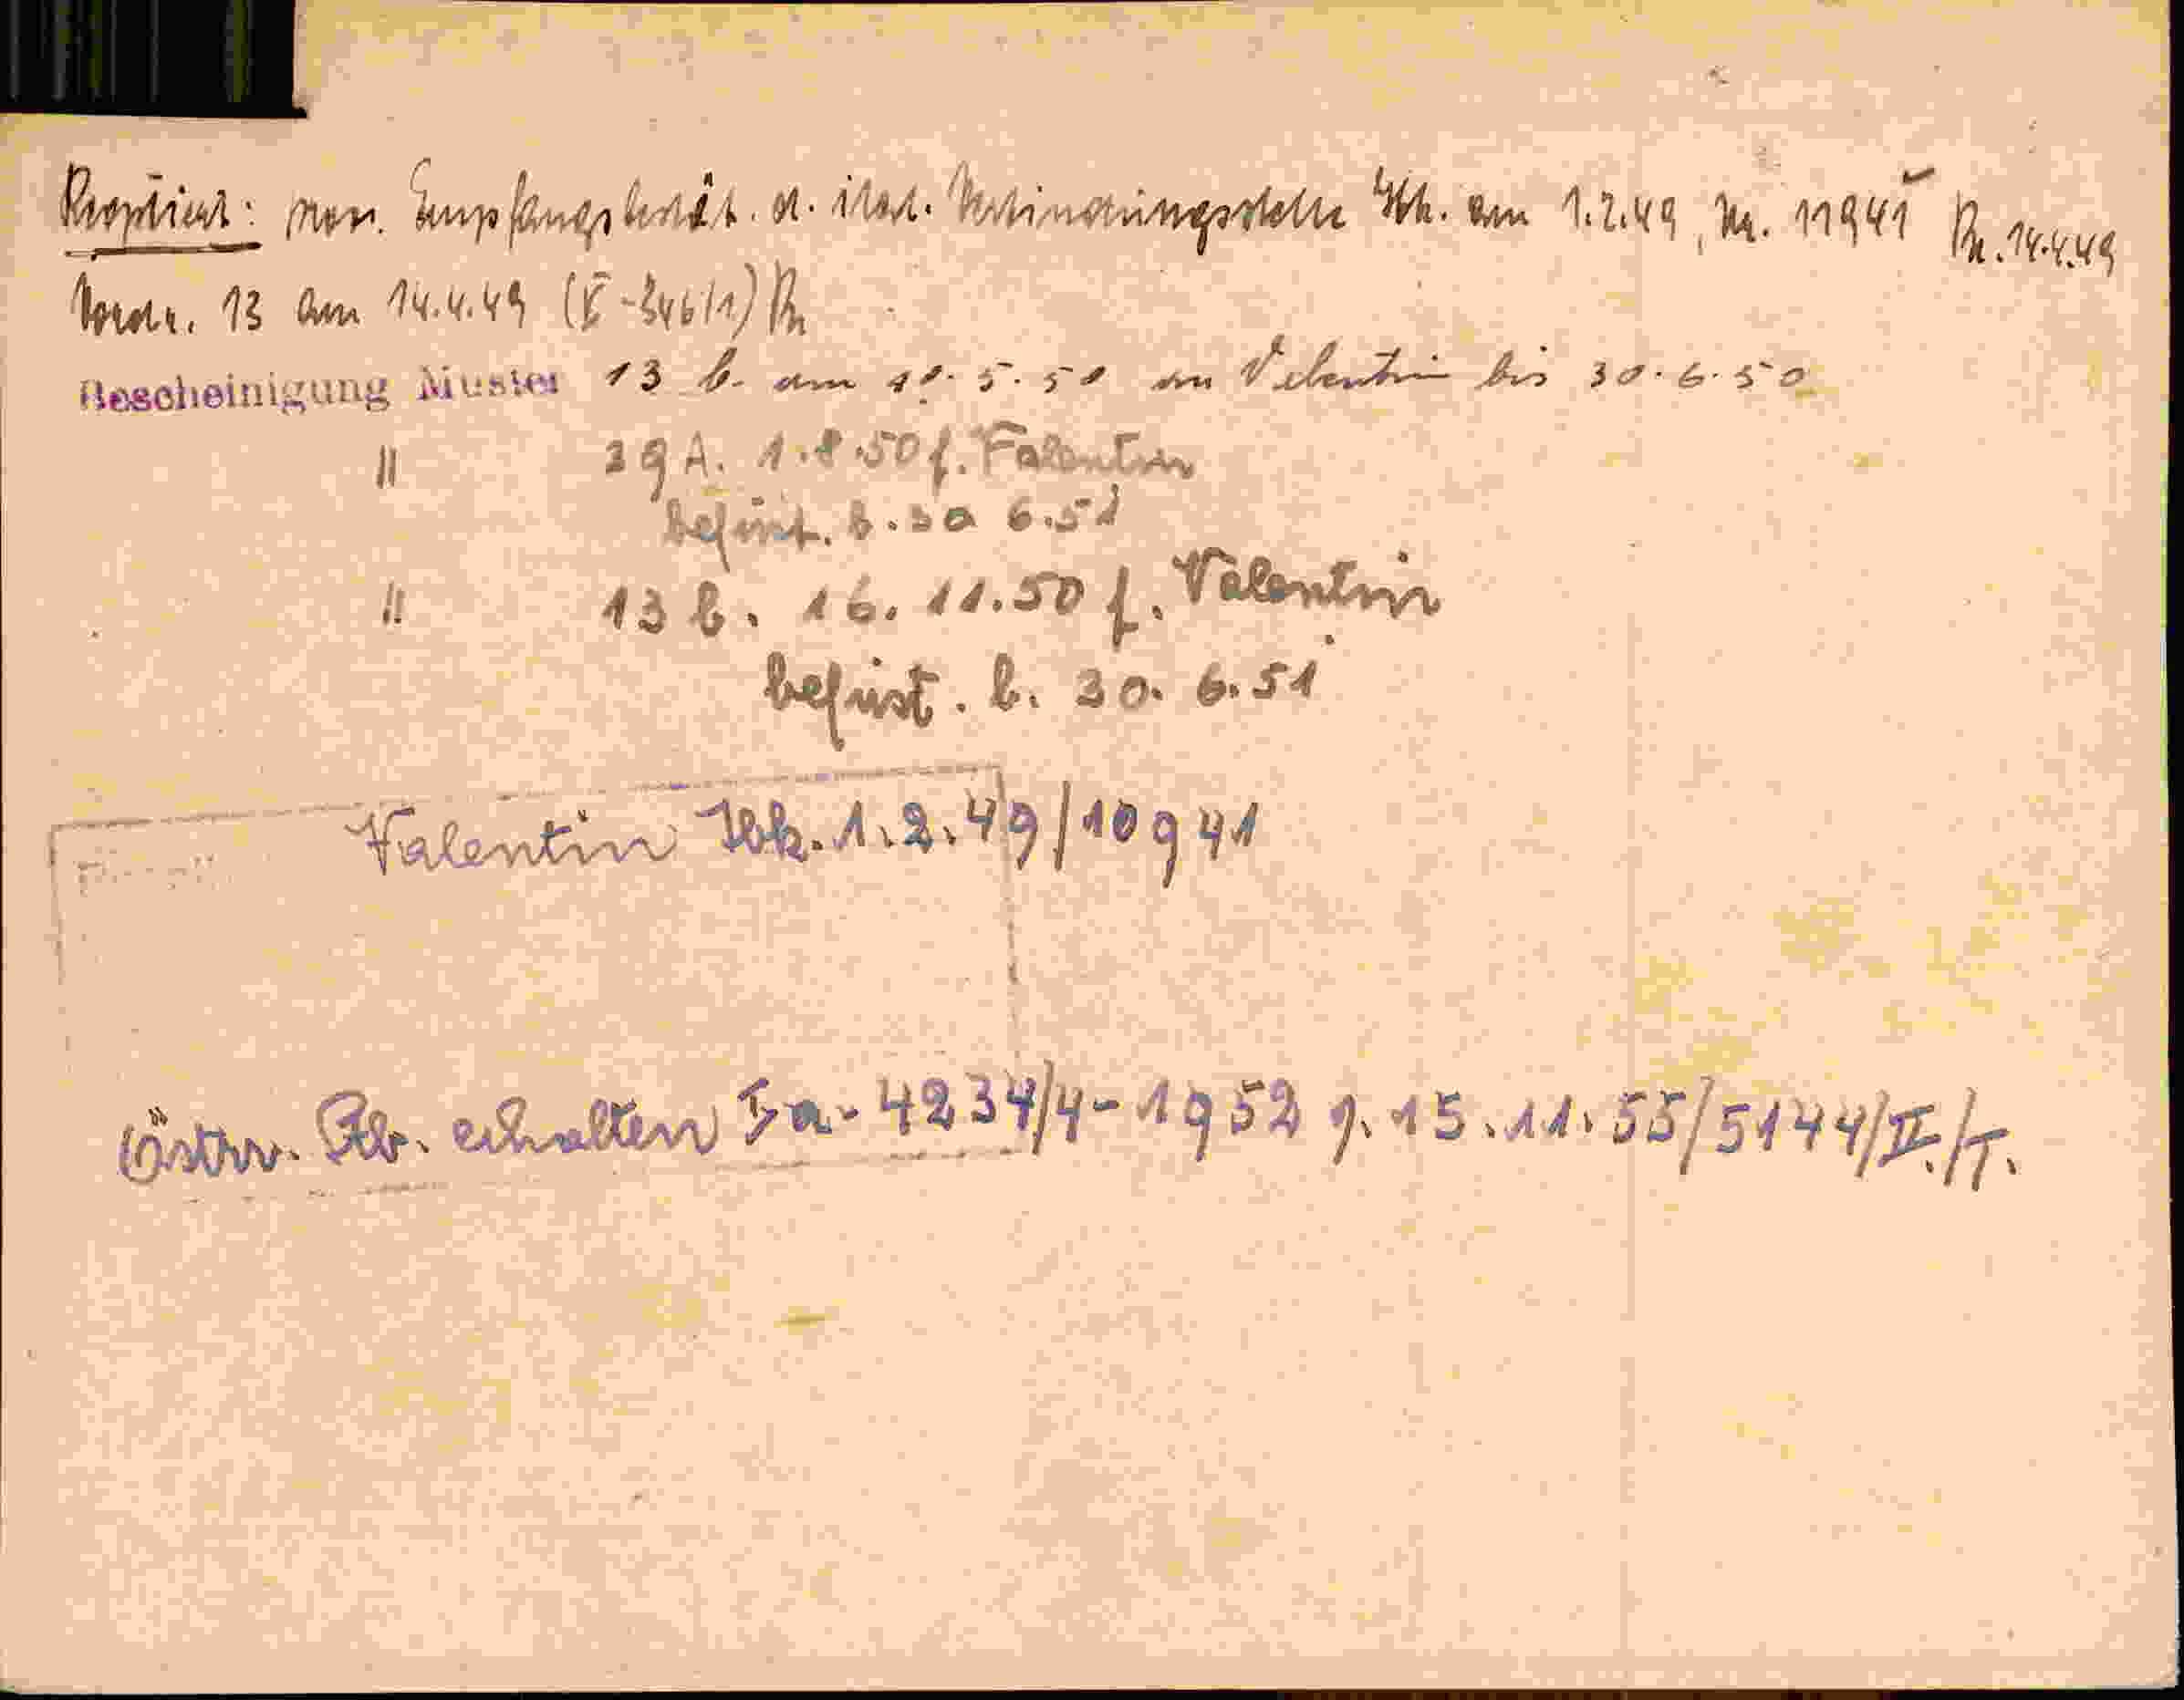 Reoptiert: man. Empfangsbestät. d. ital. Verbindungsstelle Ibk. am 1.2.49, Nr. 11941 Pr. 14.4.49
Vordr. 13 am 14.4.49 (V-346/1) Pr
Bescheinigung Muster 13 b. am 10.5.50 an Valentin bis 30.6.50
" 29 A. 1.8.50 f. Falentin
befrist. b. 30 6.51
" 13 b. 16. 11.50 f. Valentin
befrist. b. 30. 6.51
Valentin Ibk. 1.2.49/10941
Östrr. Stb. erhalten Ia-4234/4-1952 v. 15.11.55/5144/II./T.